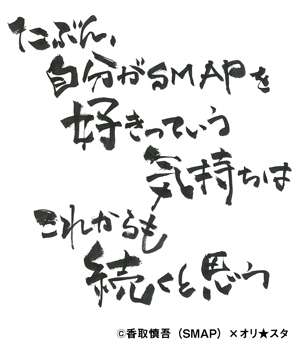 たぶん、
自分がSMAPを
好きっていう
気持ちは
これからも
続くと思う
©香取慎吾（SMAP）×オリ★スタ